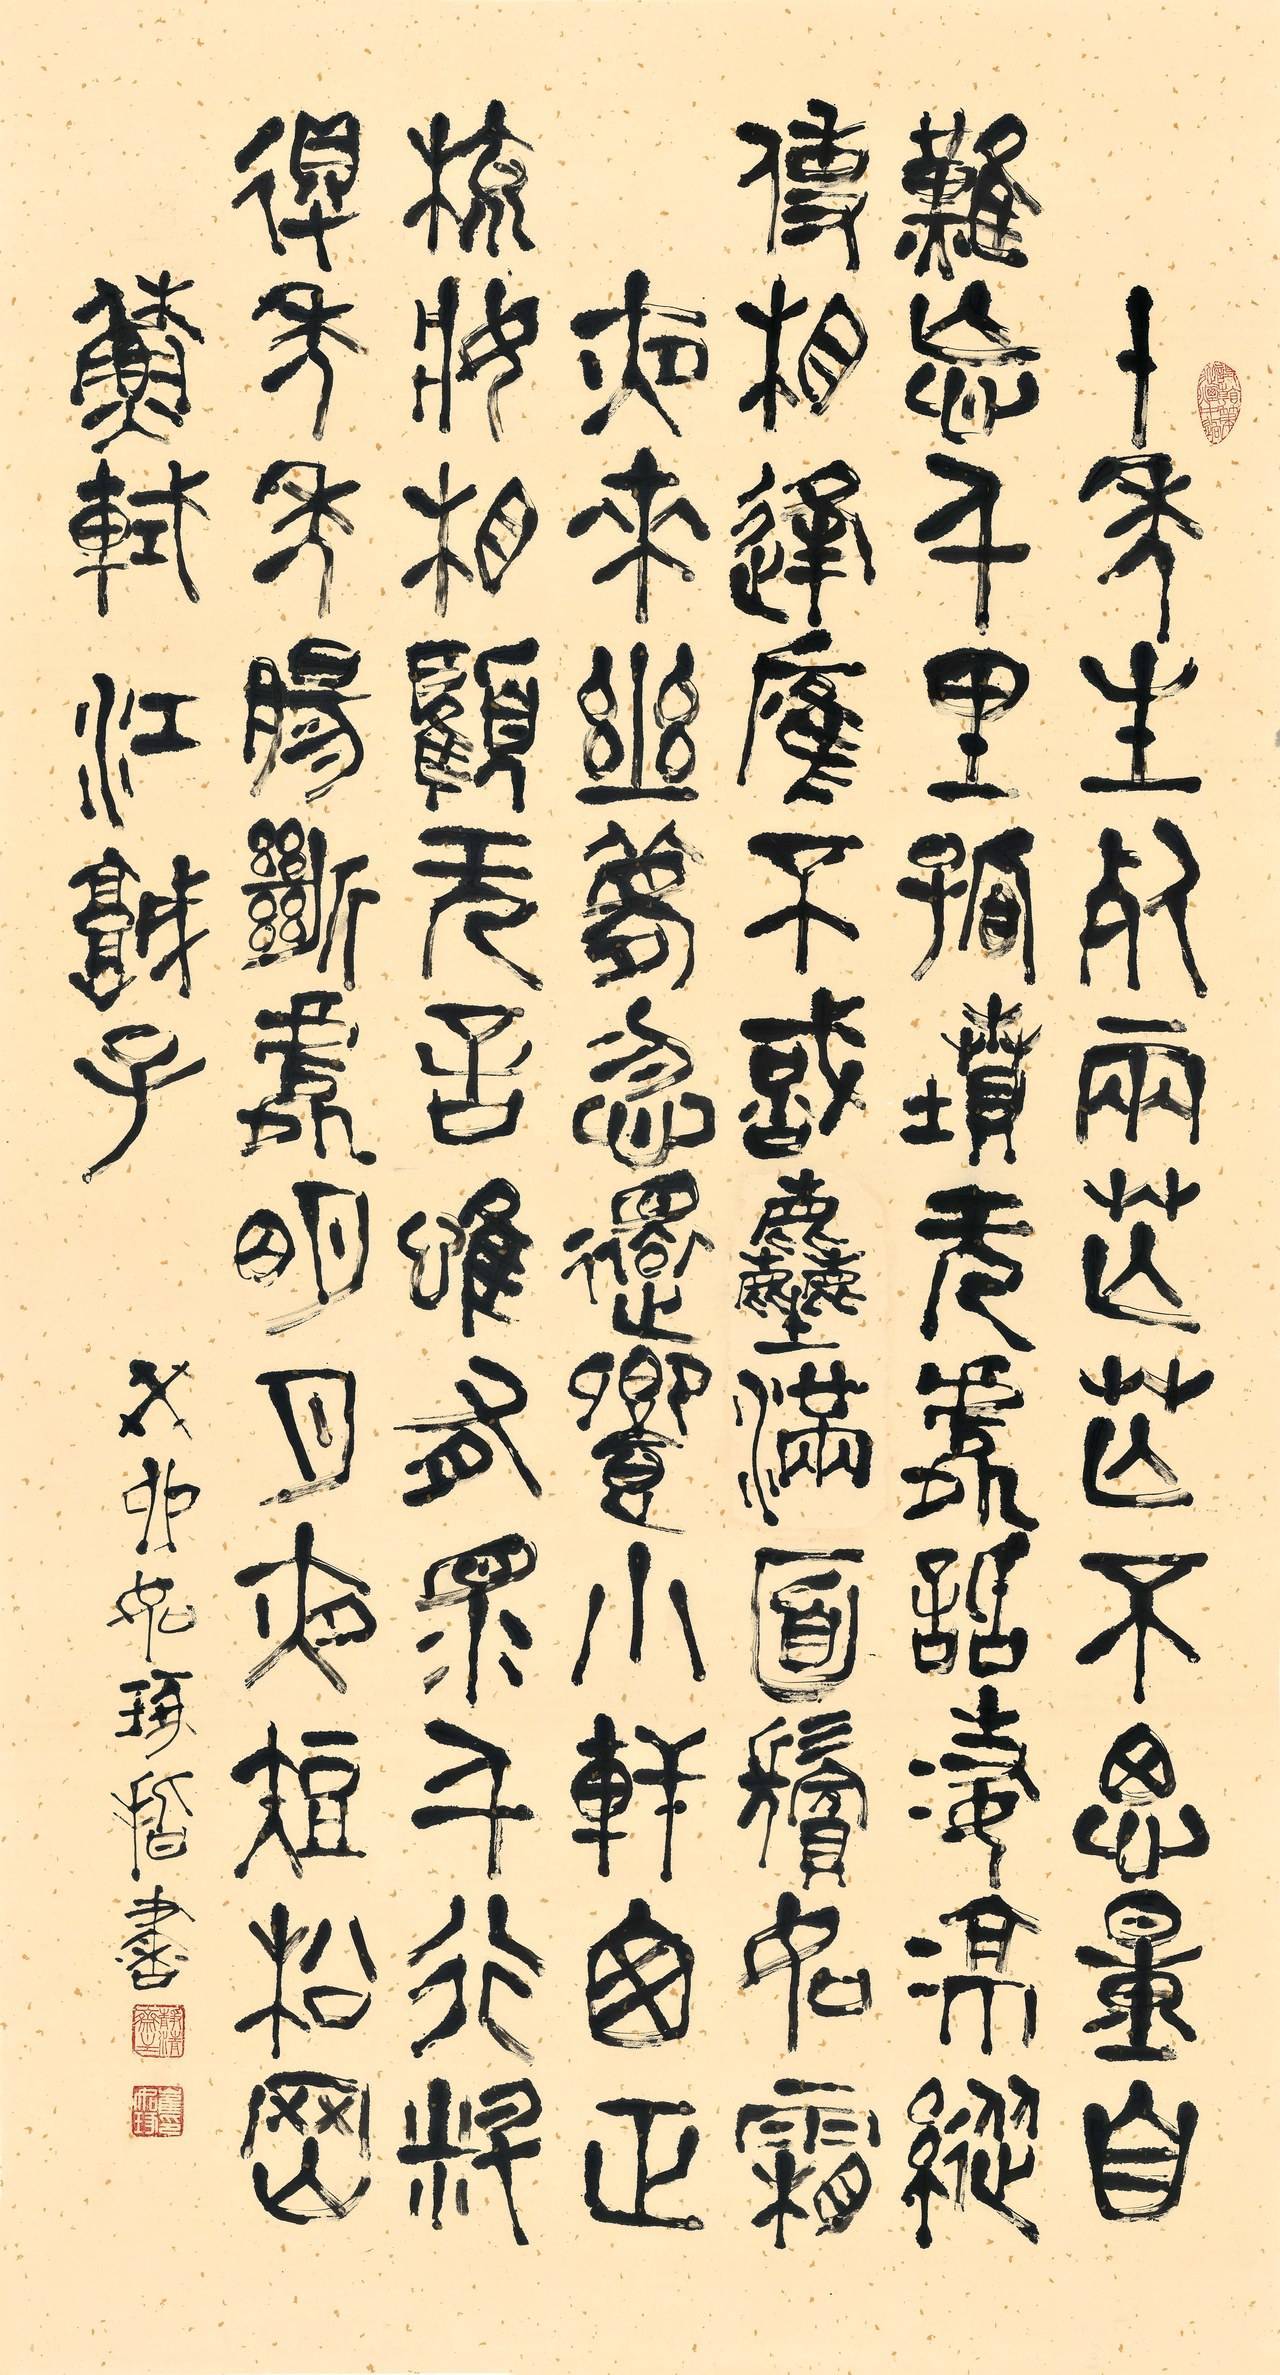 十年生死兩茫茫不思量自
難忘千里孤墳无處話淒涼縱
使相逢應不識塵滿面鬢如霜
夜來幽夢忽還鄉小軒窗正
梳妝相顧无言唯有淚千行料
得年年腸斷處明月夜短松岡
蘇軾 江城子